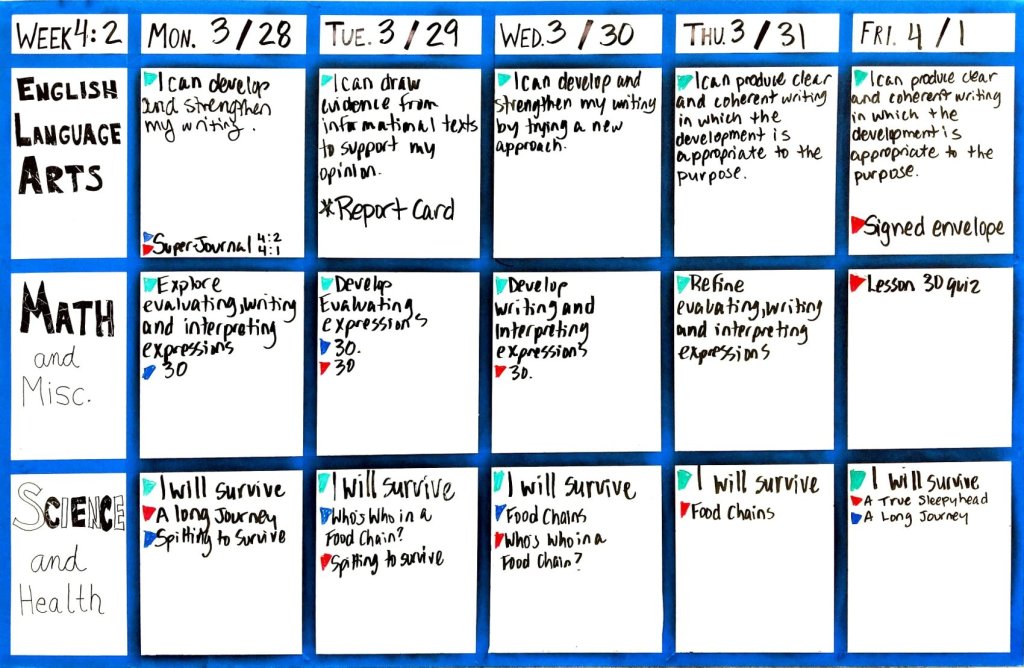 WEEK 4:2
MON. 3/28
TUE. 3/29
WED. 3/30
THU. 3/31
FRI. 4/1
ENGLISH
LANGUAGE
ARTS
I can develop
and strengthen
my writing.
Super Journal 4:2
4:1
I can draw
evidence from
informational texts
to support my
opinion.
*Report Card
I can develop and
strengthen my writing
by trying a new
approach.
I can produce clear
and coherent writing
in which the
development is
appropriate to the
purpose.
I can produce clear
and coherent writing
in which the
development is
appropriate to the
purpose.
Signed envelope
MATH
and
Misc.
Explore
evaluating, writing
and interpreting
expressions
30
Develop
Evaluating
expressions
30.
30
Develop
writing and
Interpreting
expressions
30.
Refine
evaluating, writing
and interpreting
expressions
Lesson 30 quiz
SCIENCE
and
Health
I will survive
A long Journey
Spitting to Survive
I will survive
Who's Who in a
Food Chain?
Spitting to survive
I will survive
Food Chains
Who's Who in a
Food Chain?
I will survive
Food Chains
I will survive
A True Sleepyhead
A Long Journey